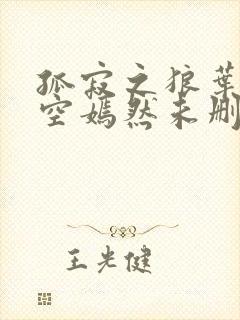 孤寂之狼叶
空嫣然未删
王光健